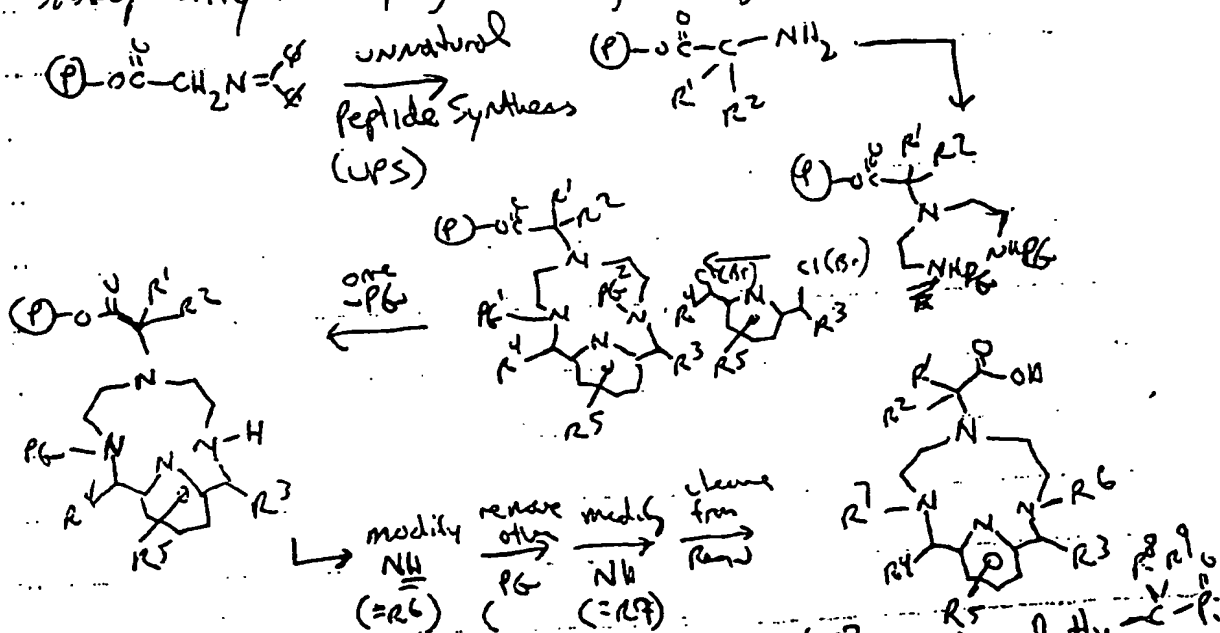 unnatural
Peptide Synthesis
(UPS)
(P)-OC-CH2N=
(P)-OC-C-NH2
R1 R2
(P)-OC R1 R2
N
NHPG
NHPG
(P)-OC R1 R2
N
PG1 N PG2 N
R4 N R3
R5
Cl(Br) Cl(Br)
R4 N R3
R5
one
-PG
(P)-O O R1 R2
N
PG-N N-H
R4 N R3
R5
modify
NH
(=R6)
remove
other
PG
(
modify
NH
(=R7)
cleave
from
Resin
R1 O OH
R2
N
R7 N N R6
R4 N R3
R5
R8 R9 O
C-P